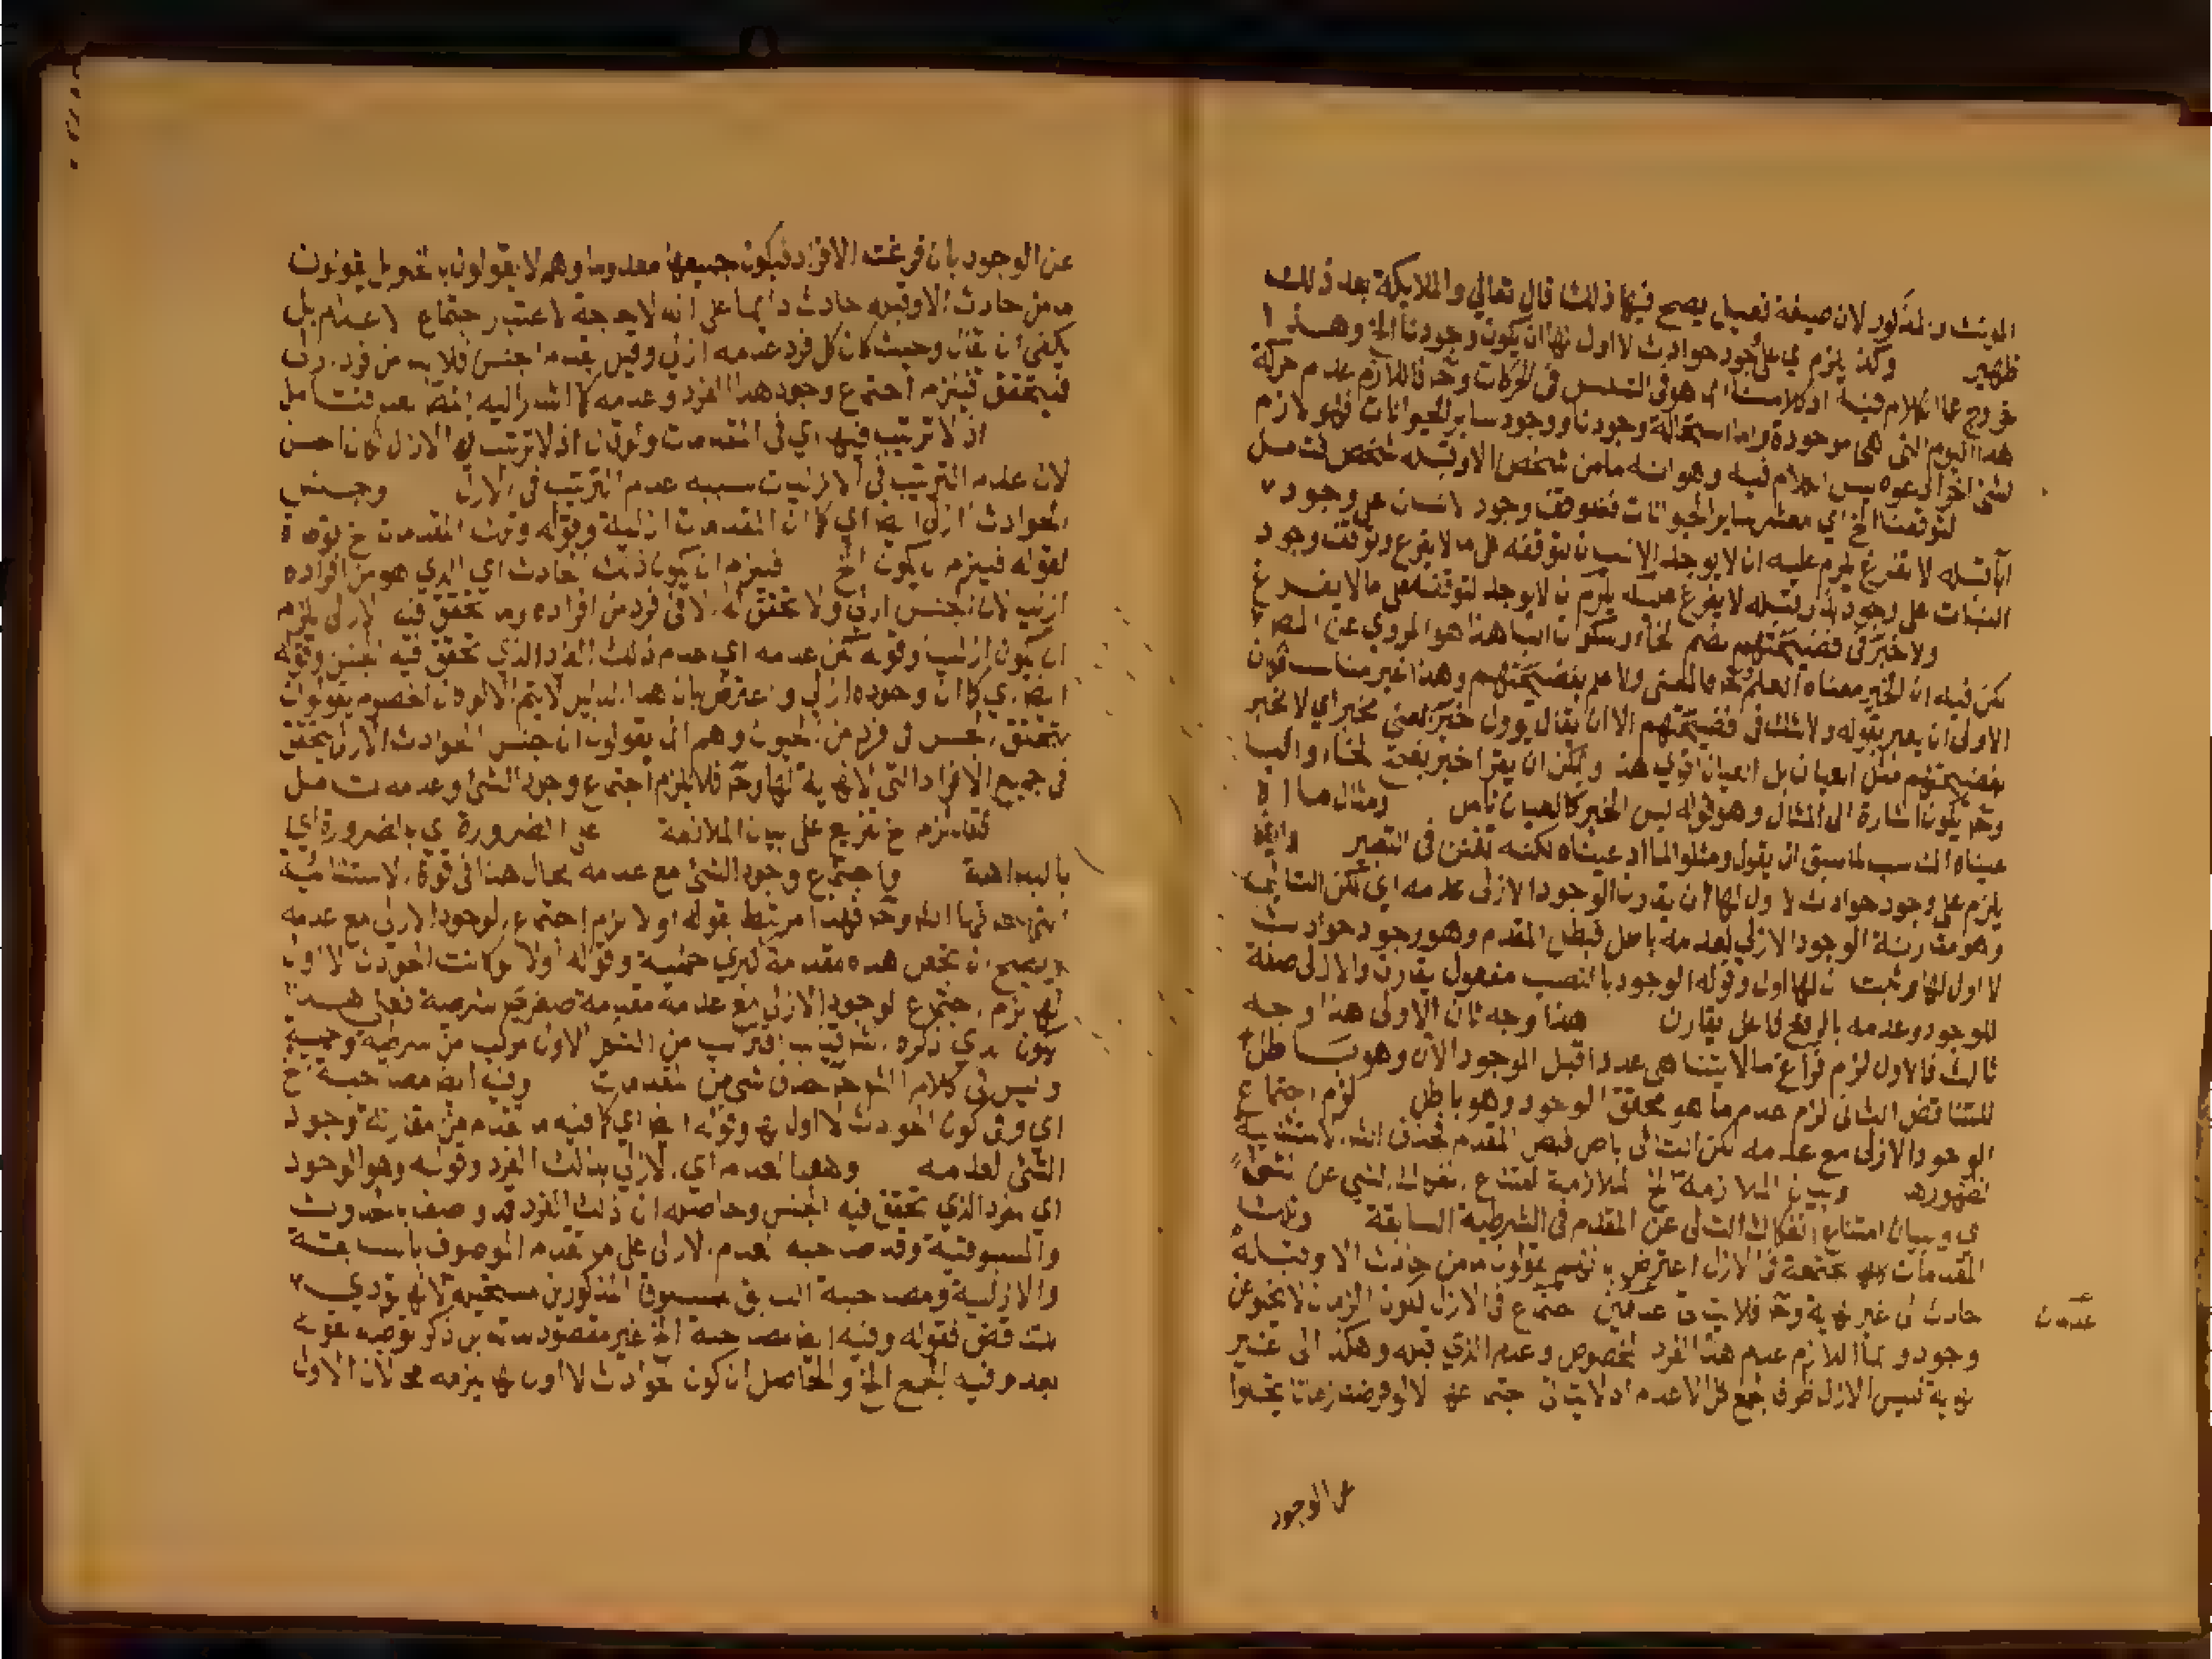 المونث والمذكور لان صيغة فعيل يصح فيها ذلك قال تعالي والملايكة بعد ذلك
ظهير وكذا يلزم علي وجود حوادث لا اول لها ان يكون وجودنا الخ وهذا
خروج عما الكلام فيه اذ كلامنا انما هو في التسلسل في الحركات وح فاللازم عدم حركة
هذا اليوم التي هي موجودة واما استحالة وجودنا ووجود ساير الحيوانات فهو لازم
لشي اخر ادعوه ليس الكلام فيه وهو انه ما من شخص الا وقبله شخص فتامل
لتوقفنا الخ اي معشر ساير الحيوانات فتوقف وجود الانسان علي وجود
اباء قبله لا تفرغ يلزم عليه ان لا يوجد الانسان لتوقفه على ما لا يفرغ وتوقف وجود
النبات علي وجود بذر قبله لا يفرغ عليه يلزم ان لا يوجد لتوقفه علي ما لا يفرغ
ولا خبر في فضيحتهم بضم الخاء وسكون البا هذا هو المروي عن المص
لكن فيه ان الخبر معناه العلم وح فالمعنى ولا علم بفضيحتهم وهذا غير مناسب فكان
الاولى ان يعبر بقوله ولا شك في فضيحتهم الا ان يقال يوول خبر بمعنى مخبر اي لا مخبر
بفضيحتهم مثل العيان بل العيان اقوي هذا ويمكن ان يقرا خبر بفتح الخاء والبا
وح يكون اشارة الى المثال وهو قوله ليس الخبر كالعيان تامل ومثال ما ا
عيناه المناسب لما سبق ان يقول ومثلوا لما ادعيناه لكنه تفنن في التعبير وايضا
يلزم على وجود حوادث لا اول لها ان يقارن الوجود الازلى عدمه اي لكن التالي
وهو مقارنة الوجود الازلي لعدمه باطل فبطل المقدم وهو وجود حوادث
لا اول لها وثبت ان لها اول وقوله الوجود بالنصب مفعول يقارن والازلى صفة
للوجود وعدمه بالرفع فاعل يقارن هذا وجه ثان الاولى هذا وجه
ثالث فالاول لزم فراغ ما لا يتناهى عددا قبل الموجود الان وهو باطل
للتناقض الثاني لزم عدم ما هو محقق الوجود وهو باطل لزم اجتماع
الوجود الازلى مع عدمه لكن التالى باطل فبطل المقدم فحذف الاستثنايية
لظهورها وبيان الملازمة الخ الملازمة امتناع انفكاك الشي عن الشي
اي وبيان امتناع انفكاك التالى عن المقدم في الشرطية السابقة وتلك
المقدمات كلها مجتمعة في الازل اعترض بانهم يقولون ما من حادث الا وقبله
حادث الى غير نهاية وح فلا يتاتى عدمين اجتماع في الازل لكون الزمن لا يخلو عن
عدمات
وجود وانما اللازم عدم هذا الفرد المخصوص وعدم الذي قبله وهكذا الى غير
نهاية فليس الازل ظرف يجمع كل الاعدام اذ لا يتاتى اجتماعها الا لو فرضت زمانا يخلوا
عن الوجود
عن الوجود بان فرغت الافراد فيكون جميعها معدوما وهم لا يقولون به بل يقولون
ما من حادث الا وقبله حادث دايما على انه لا حاجة لاعتبار اجتماع الاعدام بل
يكفى ان يقال وحيث كان كل فرد عدمه ازلي وقيل بقدم الجنس فلا بد من فرد ازلي
فيتحقق فيلزم اجتماع وجود هذا الفرد وعدمه كما اشار اليه ايضا بعد فتامل
اذ لا ترتيب فيها اي في المقدمات ولو قال اذ لا ترتيب في الازل كان احسن
لان عدم الترتيب في الازليات سببه عدم الترتيب في الازل وجنس
الحوادث ازلى ايضا اي كما ان المقدمات ازلية وقوله وتلك المقدمات الخ توطئة
لقوله فيلزم ان يكون الخ فيلزم ان يكون ذلك الحادث اي الذي هو من افراده
ازليا لان الجنس ازلي ولا تحقق له الا في فرد من افراده وما تحقق فيه الازلى يلزم
ان يكون ازليا وقوله لكن عدمه اي عدم ذلك الفرد الذي تحقق فيه الجنس وقوله
ايضا اي كما ان وجوده ازلي واعترض بان هذا الدليل لا يتم الا لو كان الخصوم يقولون
بتحقق الجنس في فرد من الحيوان وهم انما يقولون ان جنس الحوادث الازلى يتحقق
في جميع الافراد التى لا نهاية لها وح فلا يلزم اجتماع وجود الشي وعدمه تامل
فقد لزم الخ تفريع على بيان الملازمة على الضرورة اي بالضرورة اي
بالبداهة واجتماع وجود الشئ مع عدمه محال هذا في قوة الاستثنائية
التى حذفها الشارح وح فهذا مرتبط بقوله اولا لزم اجتماع الوجود الازلى مع عدمه
ويصح ان تجعل هذه مقدمة كبري حملية وقوله اولا لو كانت الحوادث لا اول
لها لزم اجتماع الوجود الازلي مع عدمه مقدمة صغرى شرطية فعلى هذا
يكون الذي ذكره الشارح قياس اقتراني من الشكل الاول مركب من شرطية وحملية
وليس في كلام الشرح حذف شي من المقدمات وفيه ايضا مصاحبة الخ
اي وفي كون الحوادث لا اول لها وقوله ايضا اي كما فيه ما تقدم من مقارنة وجود
الشئ لعدمه وهما العدم اي الازلي بذلك الفرد وقوله وهو الوجود
اي الفرد الذي تحقق فيه الجنس وحاصله ان ذلك الفرد قد وصف بالحدوث
والمسبوقية وقد صاحبه العدم الازلى على ما تقدم الموصوف بالسابقية
والازلية ومصاحبة السابق للمسبوق المذكورين مستحيلة لانه يؤدي
للتناقض فقوله وفيه ايضا مصاحبة الخ غير مقصود بذاته بل ذكر توطئة لقوله
بعد وفيه الجمع الخ والحاصل ان كون الحوادث لا اول لها يلزمه محالان الاول